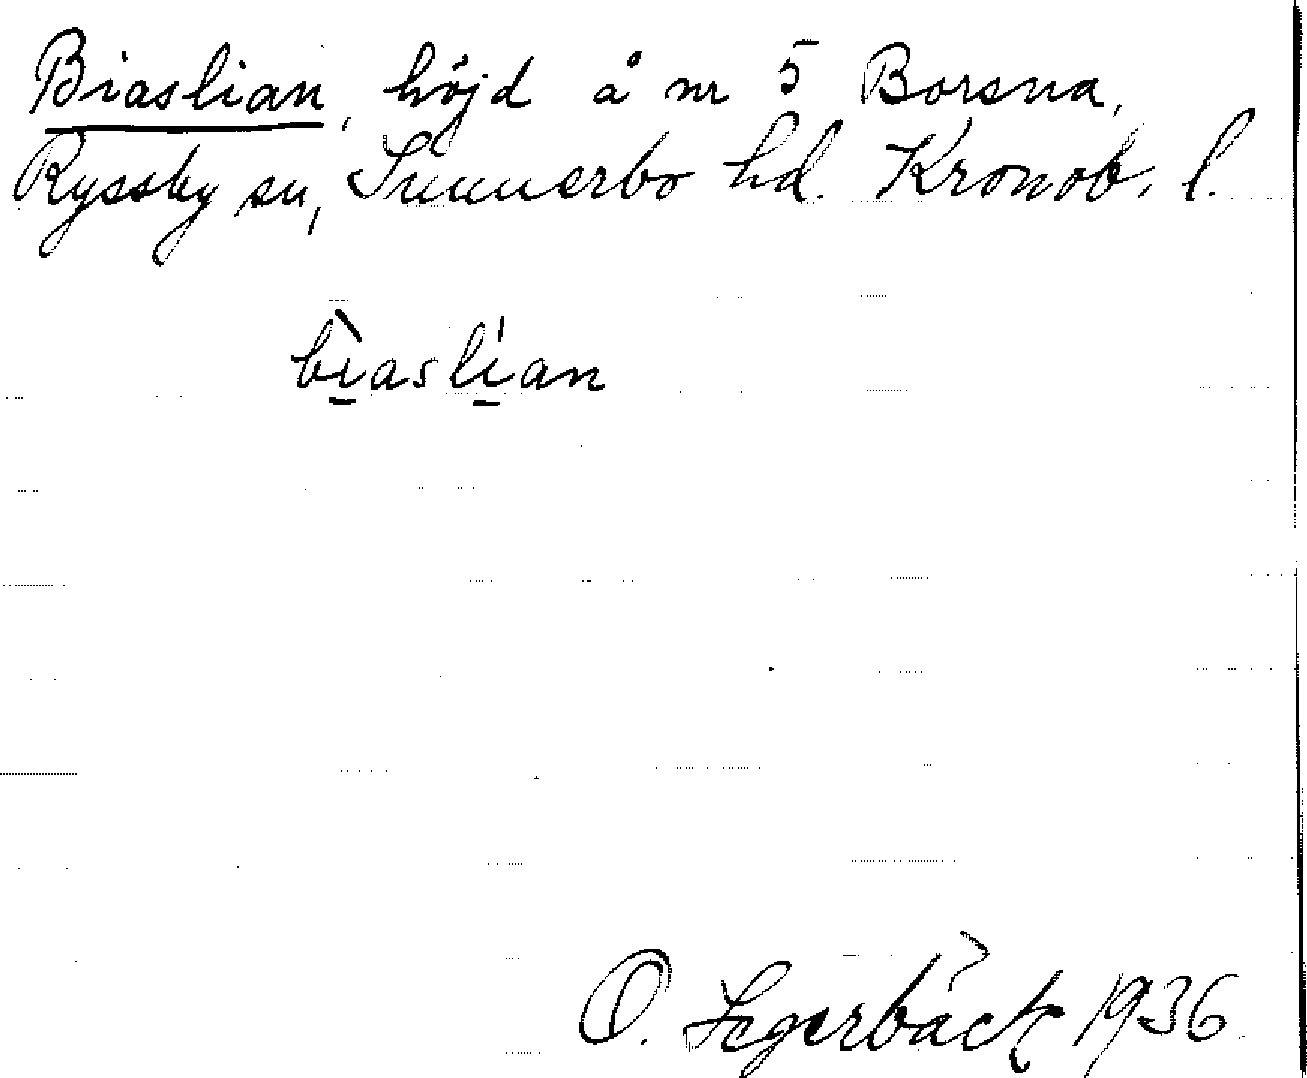 Biaslian, höjd å nr 5 Borsna,
Ryssby sn, Sunnerbo hd. Kronob. l.
bìaslían
O. Segerbäck 1936